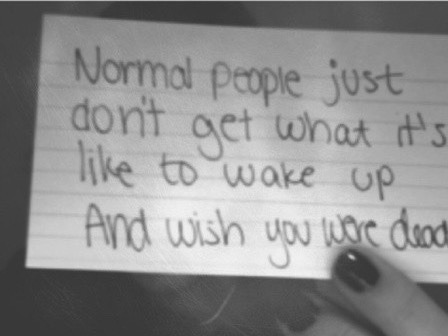 Normal people just
don't get what it's
like to wake up
And wish you were dead